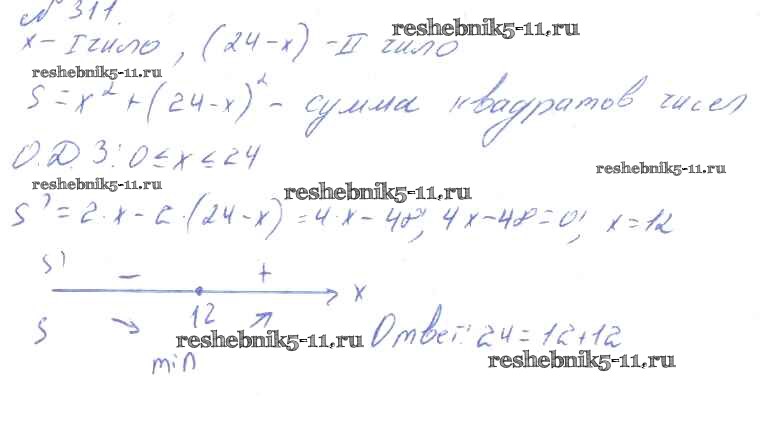 № 311.
reshebnik5-11.ru
x - I число, (24-x) - II число
reshebnik5-11.ru
S = x² + (24-x)² - сумма квадратов чисел
О.Д.З: 0 ≤ x ≤ 24
reshebnik5-11.ru
reshebnik5-11.ru
reshebnik5-11.ru
S' = 2·x - 2·(24-x) = 4·x - 48; 4x-48=0; x=12
S' - + x
S ↘ 12 ↗
reshebnik5-11.ru
Ответ: 24 = 12+12
min
reshebnik5-11.ru